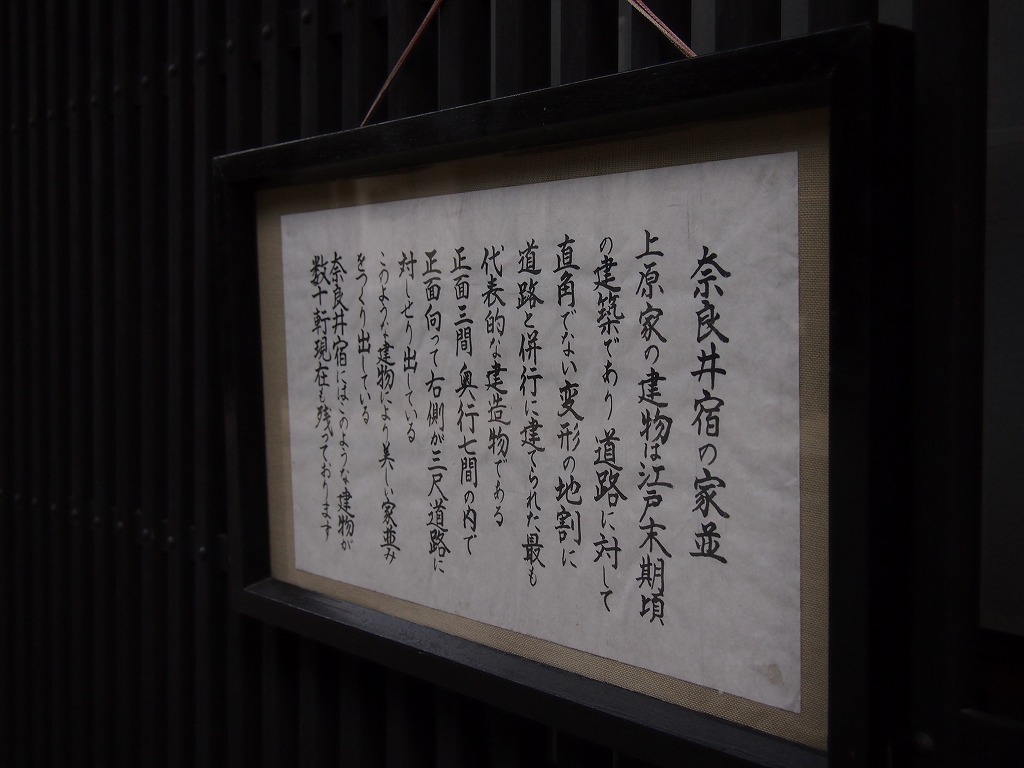 奈良井宿の家並
上原家の建物は江戸末期頃
の建築であり 道路に対して
直角でない変形の地割に
道路と併行に建てられた最も
代表的な建造物である
正面三間 奥行七間の内で
正面向って右側が三尺道路に
対しせり出している
このような建物により美しい家並み
をつくり出している
奈良井宿にはこのような建物が
数十軒現在も残っております